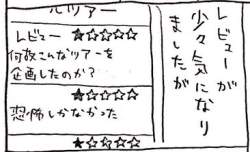 ルツアー
レビュー ★☆☆☆☆
何故こんなツアーを
企画したのか?
★☆☆☆☆
恐怖しかなかった
★☆☆☆☆
レビューが
少々気になり
ましたが